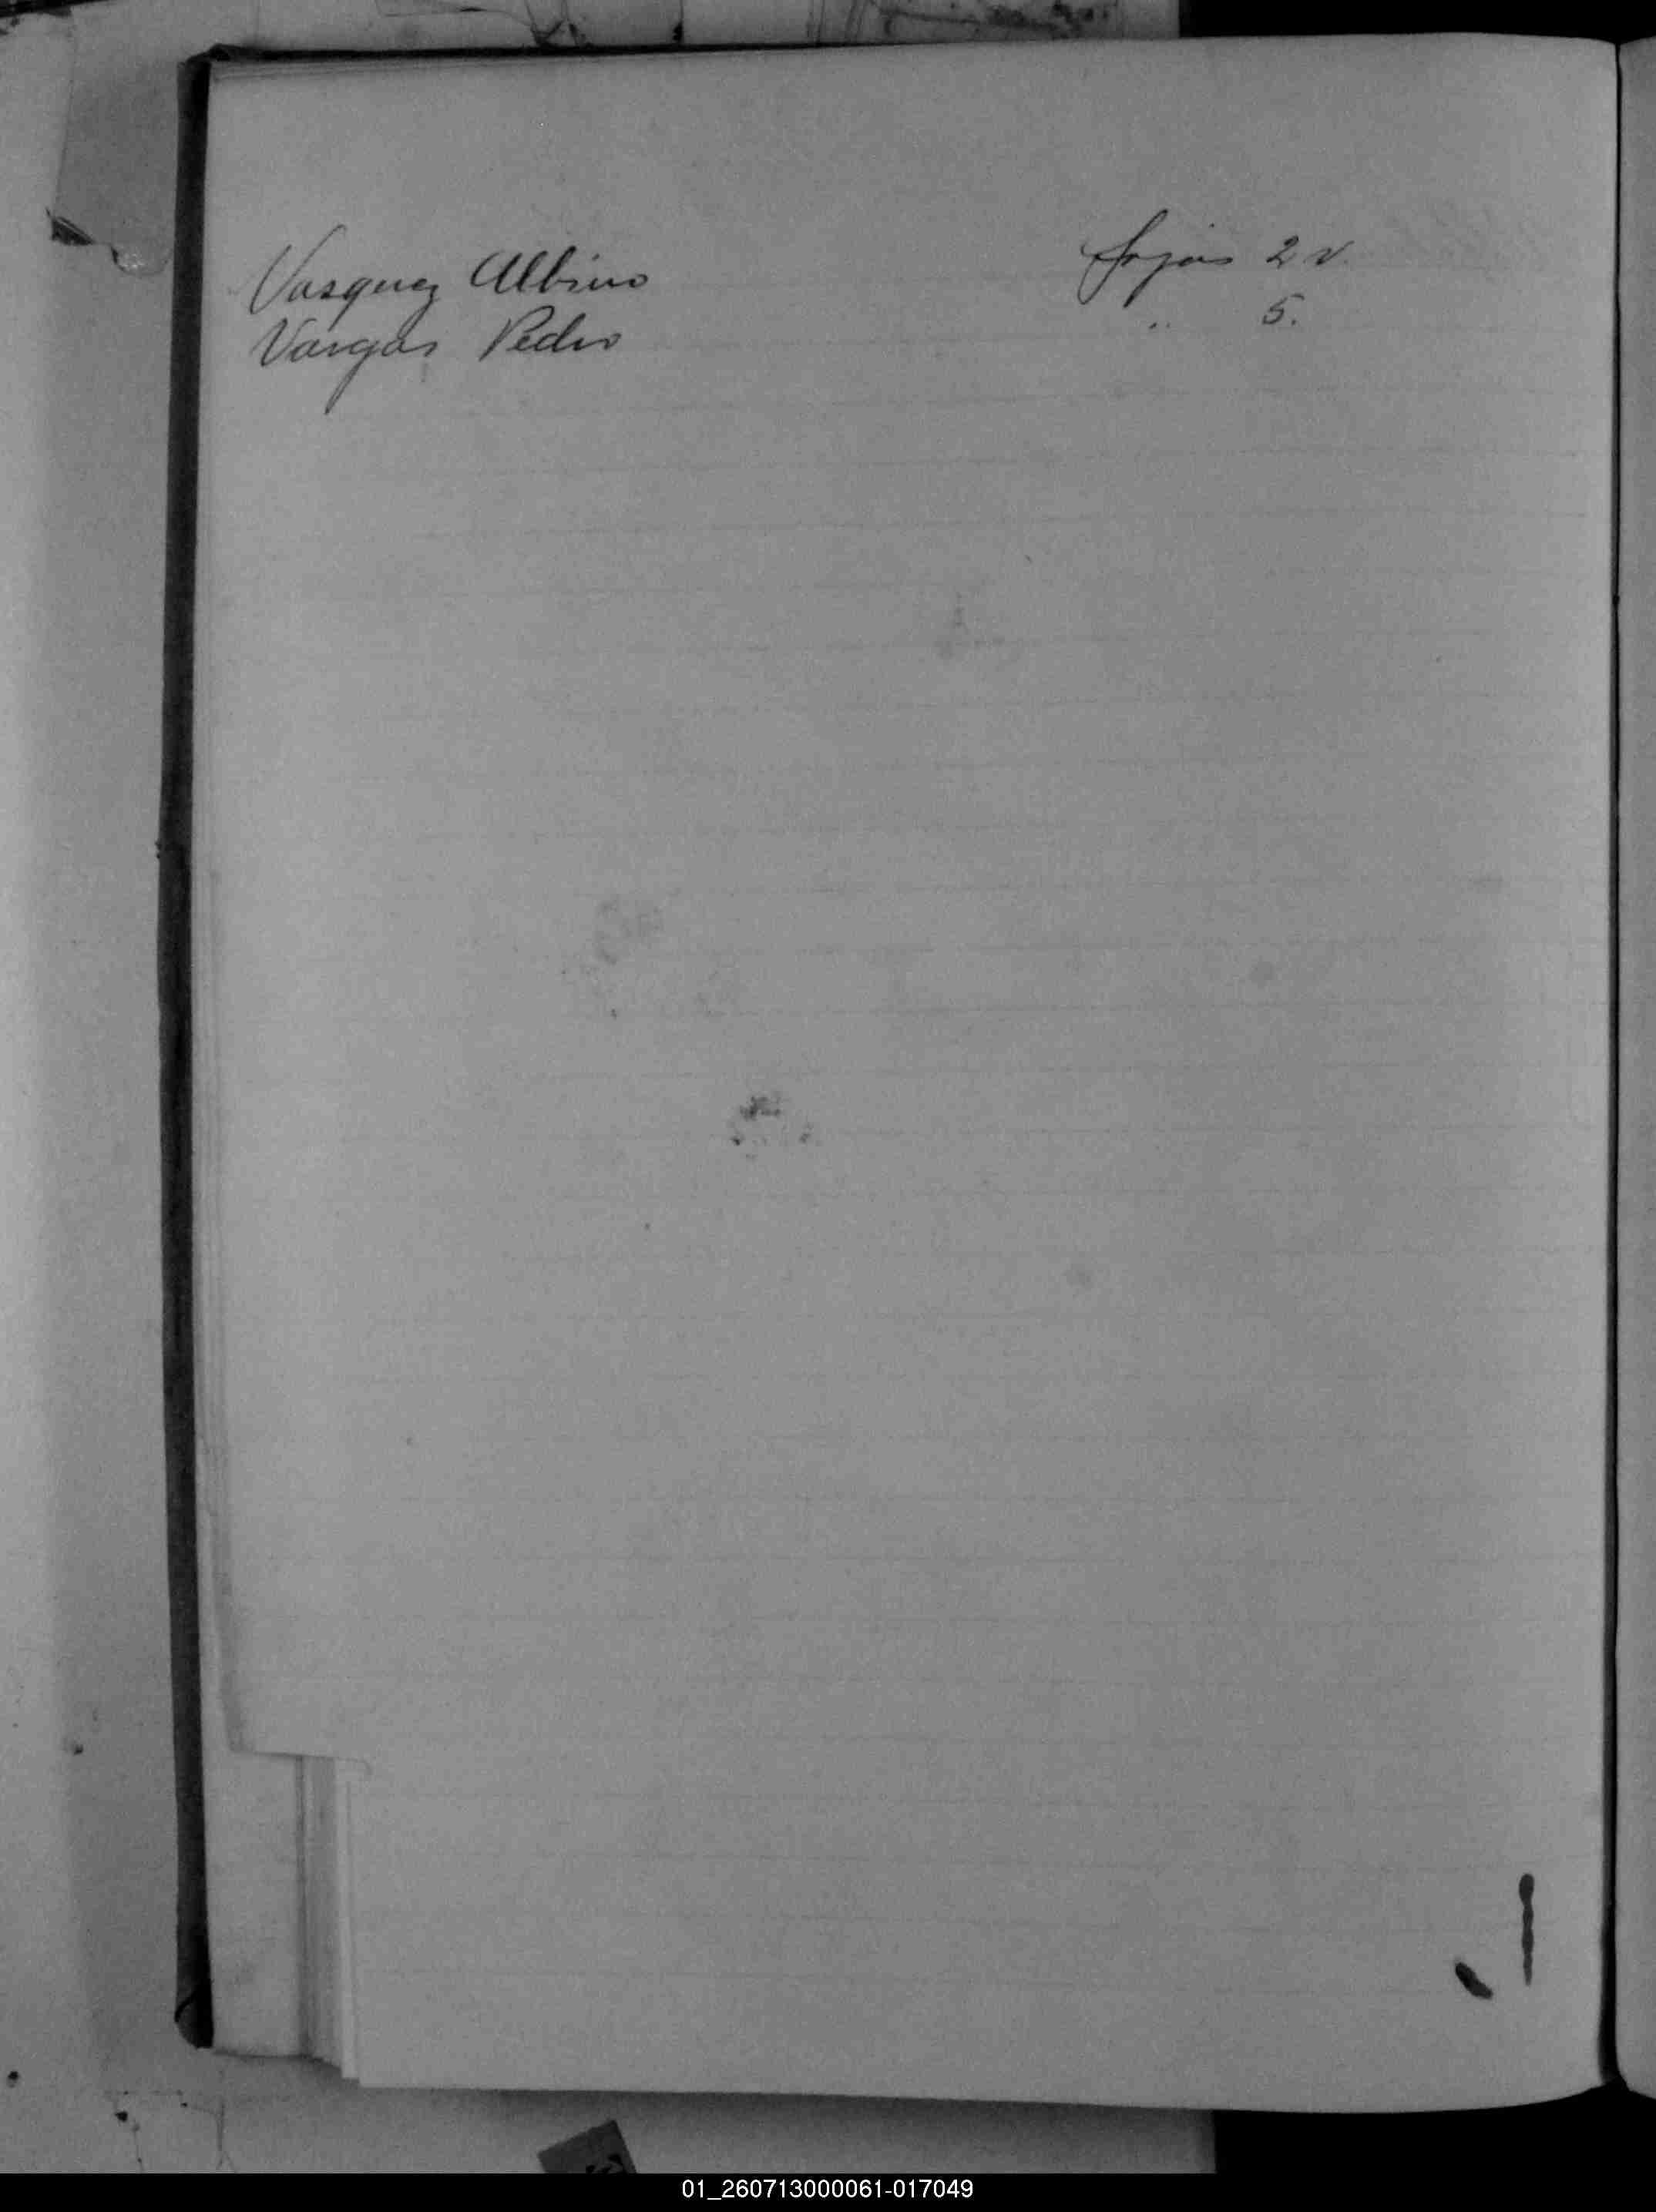 Vasquez Albino fojas 2 v.
Vargas Pedro " 5.
01_260713000061-017049